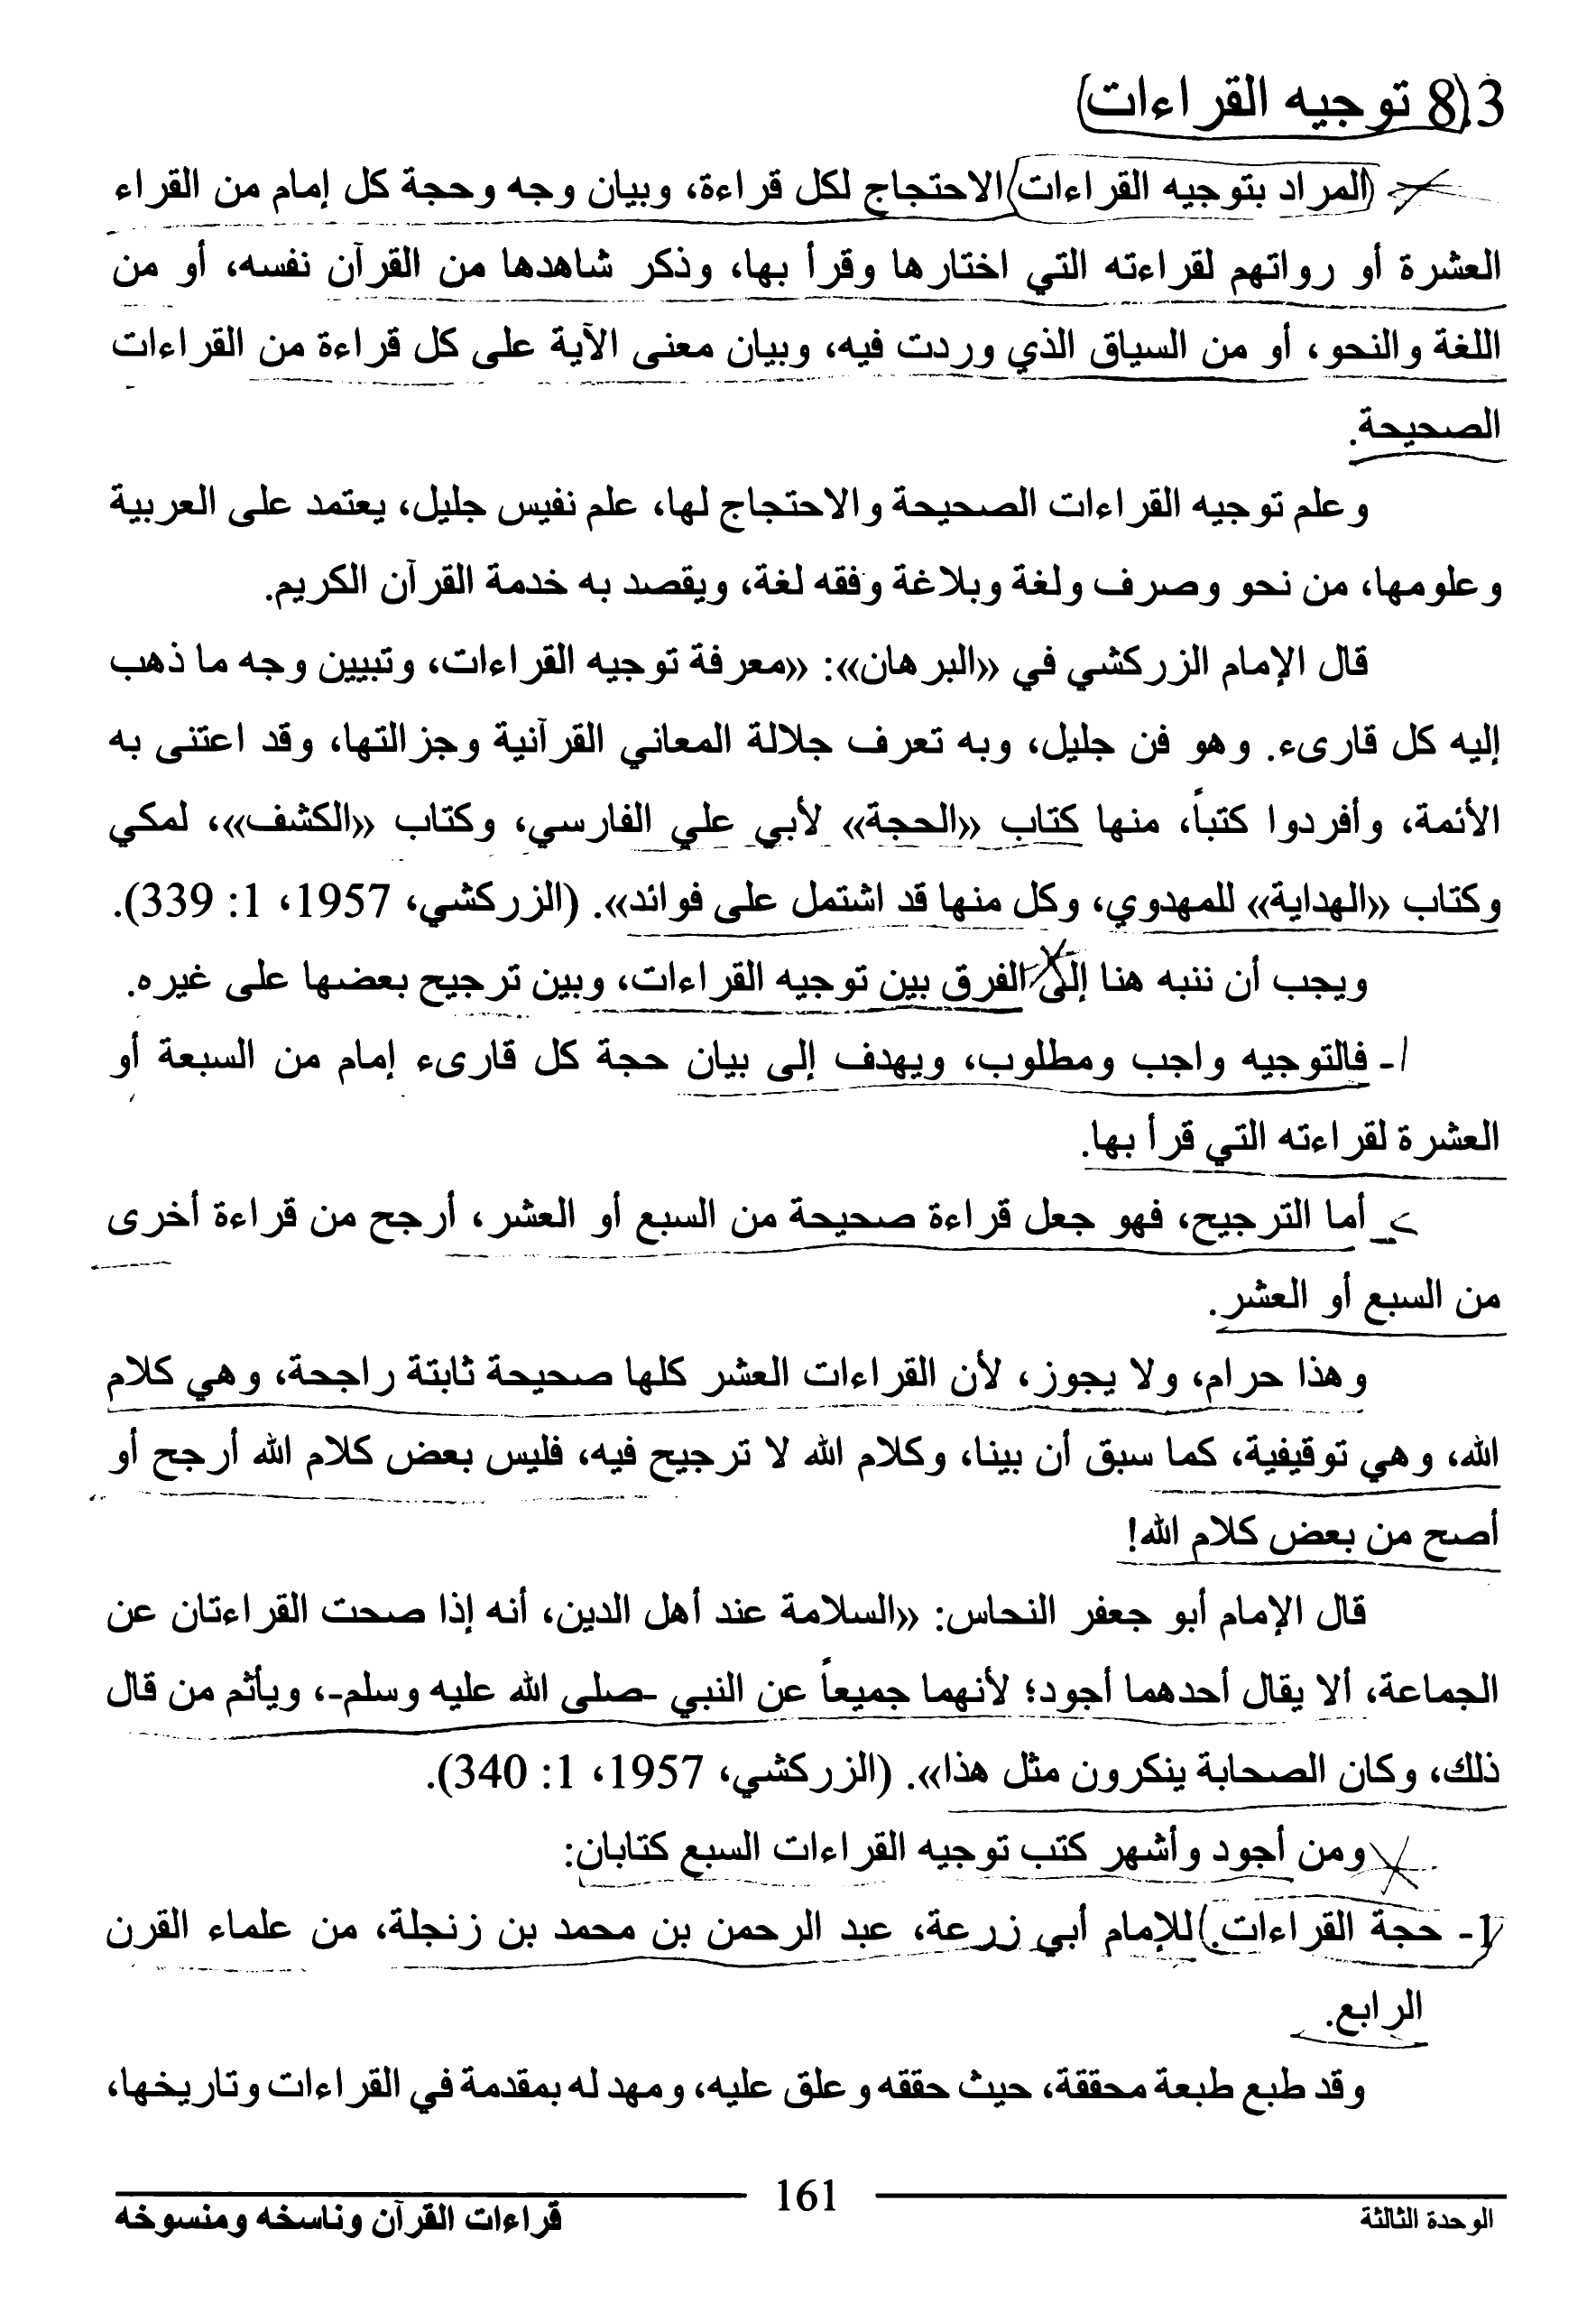 8.3 توجيه القراءات
المراد بتوجيه القراءات الاحتجاج لكل قراءة، وبيان وجه وحجة كل إمام من القراء
العشرة أو رواتهم لقراءته التي اختارها وقرأ بها، وذكر شاهدها من القرآن نفسه، أو من
اللغة والنحو، أو من السياق الذي وردت فيه، وبيان معنى الآية على كل قراءة من القراءات
الصحيحة.
وعلم توجيه القراءات الصحيحة والاحتجاج لها، علم نفيس جليل، يعتمد على العربية
وعلومها، من نحو وصرف ولغة وبلاغة وفقه لغة، ويقصد به خدمة القرآن الكريم.
قال الإمام الزركشي في «البرهان»: «معرفة توجيه القراءات، وتبيين وجه ما ذهب
إليه كل قارىء. وهو فن جليل، وبه تعرف جلالة المعاني القرآنية وجزالتها، وقد اعتنى به
الأئمة، وأفردوا كتباً، منها كتاب «الحجة» لأبي علي الفارسي، وكتاب «الكشف»، لمكي
وكتاب «الهداية» للمهدوي، وكل منها قد اشتمل على فوائد». (الزركشي، 1957، 1: 339).
ويجب أن ننبه هنا إلى الفرق بين توجيه القراءات، وبين ترجيح بعضها على غيره.
١- فالتوجيه واجب ومطلوب، ويهدف إلى بيان حجة كل قارىء إمام من السبعة أو
العشرة لقراءته التي قرأ بها.
أما الترجيح، فهو جعل قراءة صحيحة من السبع أو العشر، أرجح من قراءة أخرى
من السبع أو العشر.
وهذا حرام، ولا يجوز، لأن القراءات العشر كلها صحيحة ثابتة راجحة، وهي كلام
الله، وهي توقيفية، كما سبق أن بينا، وكلام الله لا ترجيح فيه، فليس بعض كلام الله أرجح أو
أصح من بعض كلام الله!
قال الإمام أبو جعفر النحاس: «السلامة عند أهل الدين، أنه إذا صحت القراءتان عن
الجماعة، ألا يقال أحدهما أجود؛ لأنهما جميعاً عن النبي -صلى الله عليه وسلم-، ويأثم من قال
ذلك، وكان الصحابة ينكرون مثل هذا». (الزركشي، 1957، 1: 340).
ومن أجود وأشهر كتب توجيه القراءات السبع كتابان:
1- حجة القراءات. للإمام أبي زرعة، عبد الرحمن بن محمد بن زنجلة، من علماء القرن
الرابع.
وقد طبع طبعة محققة، حيث حققه وعلق عليه، ومهد له بمقدمة في القراءات وتاريخها،
161
الوحدة الثالثة
قراءات القرآن وناسخه ومنسوخه